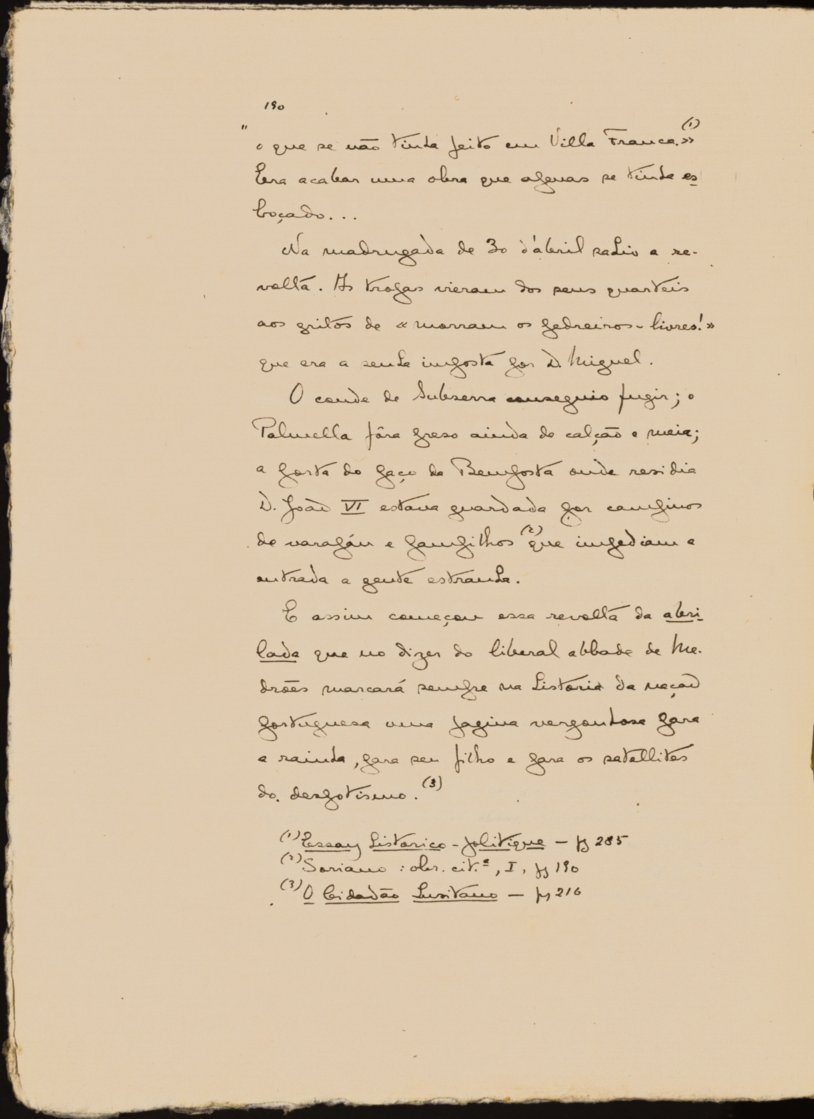 190
" o que se não tinha feito em Villa Franca.» (1)
Era acabar uma obra que apenas se tinha es
boçado...
Na madrugada de 30 d'abril sahio a re-
volta. As tropas vieram dos seus quarteis
aos gritos de «morram os pedreiros-livres!»
que era a senha imposta por D Miguel.
O conde de Subserra conseguio fugir; o
Palmella fôra preso ainda de calção e meia;
a porta do paço da Bemposta onde residia
D. João VI estava guardada por campinos
de varapáu e pampilhos (2) que impediam a
entrada a gente estranha.
E assim começou essa revolta da abri-
lada que no dizer do liberal abbade de Me-
drões marcará sempre na historia da nação
portuguesa uma pagina vergonhosa para
a rainha, para seu filho e para os satellites
do despotismo. (3)
(1) Essay historico-politique — pg 285
(2) Soriano: obr. cit.ª, I, pg 190
(3) O Cidadão Lusitano — pg 216